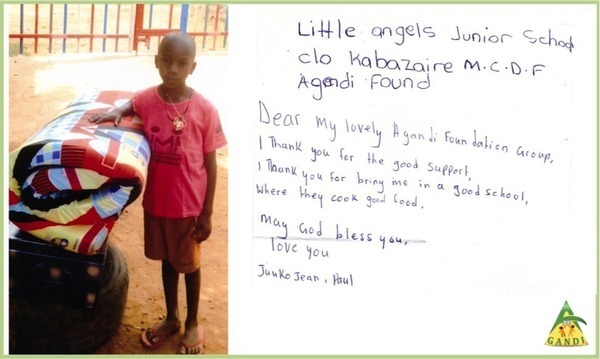 Little angels Junior School
c/o Kabazaire M.C.D.F
Agandi Found
Dear My lovely Agandi Foundation Group,
I Thank you for the good support,
I Thank you for bring me in a good school,
Where they cook good food.
May God bless you,
love you
Junko Jean, Paul
A
GANDI